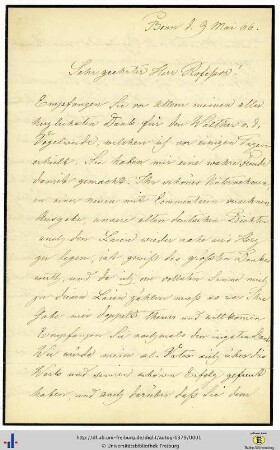 Bonn d. 9 Mai 06.
Sehr geehrter Herr Professor!
Empfangen Sie vor allem meinen aller
herzlichsten Dank für den Walther v. d.
Vogelweide, welchen ich vor einigen Tagen
erhielt. Sie haben mir eine wahre Freude
damit gemacht. Ihr schönes Unternehmen
in einer neuen mit Commentar versehenen
Ausgabe, unsere alten deutschen Dichter
auch den Laien wieder nahe ans Herz
zu legen, ist gewiß des größten Dankes
werth, und da ich im vollsten Sinne mich
zu diesen Laien zählen muß so war Ihre
Gabe mir doppelt theuer und willkommen
Empfangen Sie nochmals den innigsten Dank
Wie würde mein sel. Vater sich über das
Werk und seinen schönen Erfolg gefreut
haben, und auch darüber daß Sie dem
http://dl.ub.uni-freiburg.de/diglit/autogr0379/0001
© Universitätsbibliothek Freiburg